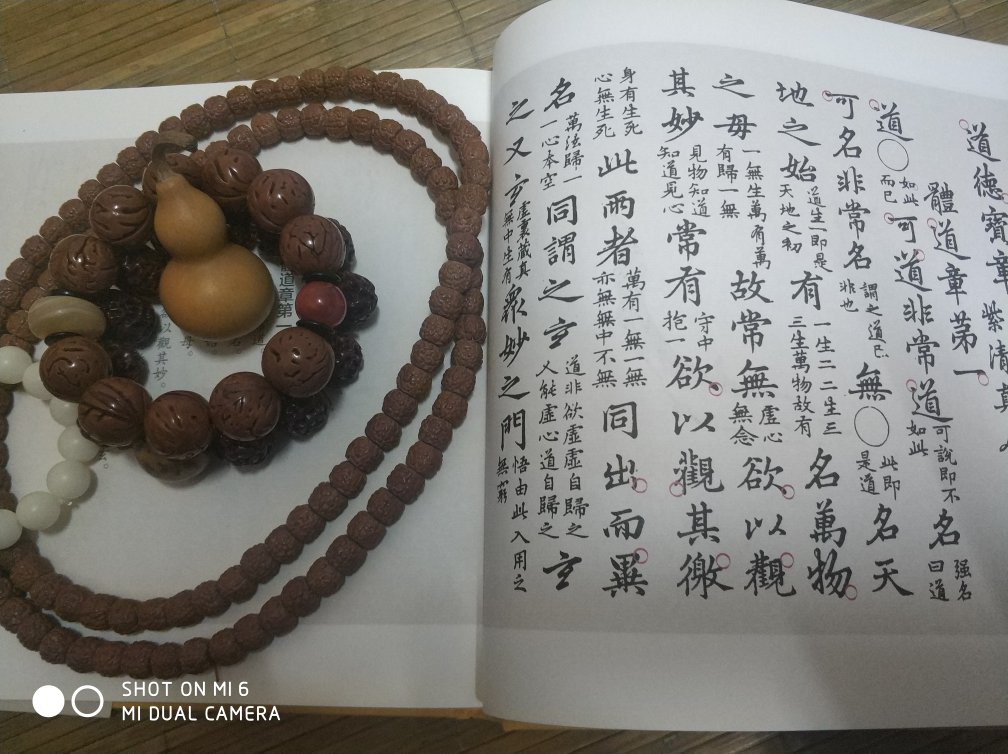 道德寶章 紫清真人
體道章第一
道○如此而已可道非常道可說即不如此名强名曰道
可名非常名謂之道已非也無○此即是道名天
地之始道生一即是天地之初有一生二二生三三生萬物故有名萬物
之母一無生萬有萬有歸一無故常無虛心無念欲以觀
其妙見物知道知道見心常有守中抱一欲以觀其徼
身有生死心無生死此兩者萬有一無一無亦無無中不無同出而異
名萬法歸一一心本空同謂之玄道非欲虛虛自歸之人能虛心道自歸之玄
之又玄虛裏藏真無中生有眾妙之門悟由此入用之無窮
道章第一
以觀其妙。
母。
SHOT ON MI 6
MI DUAL CAMERA